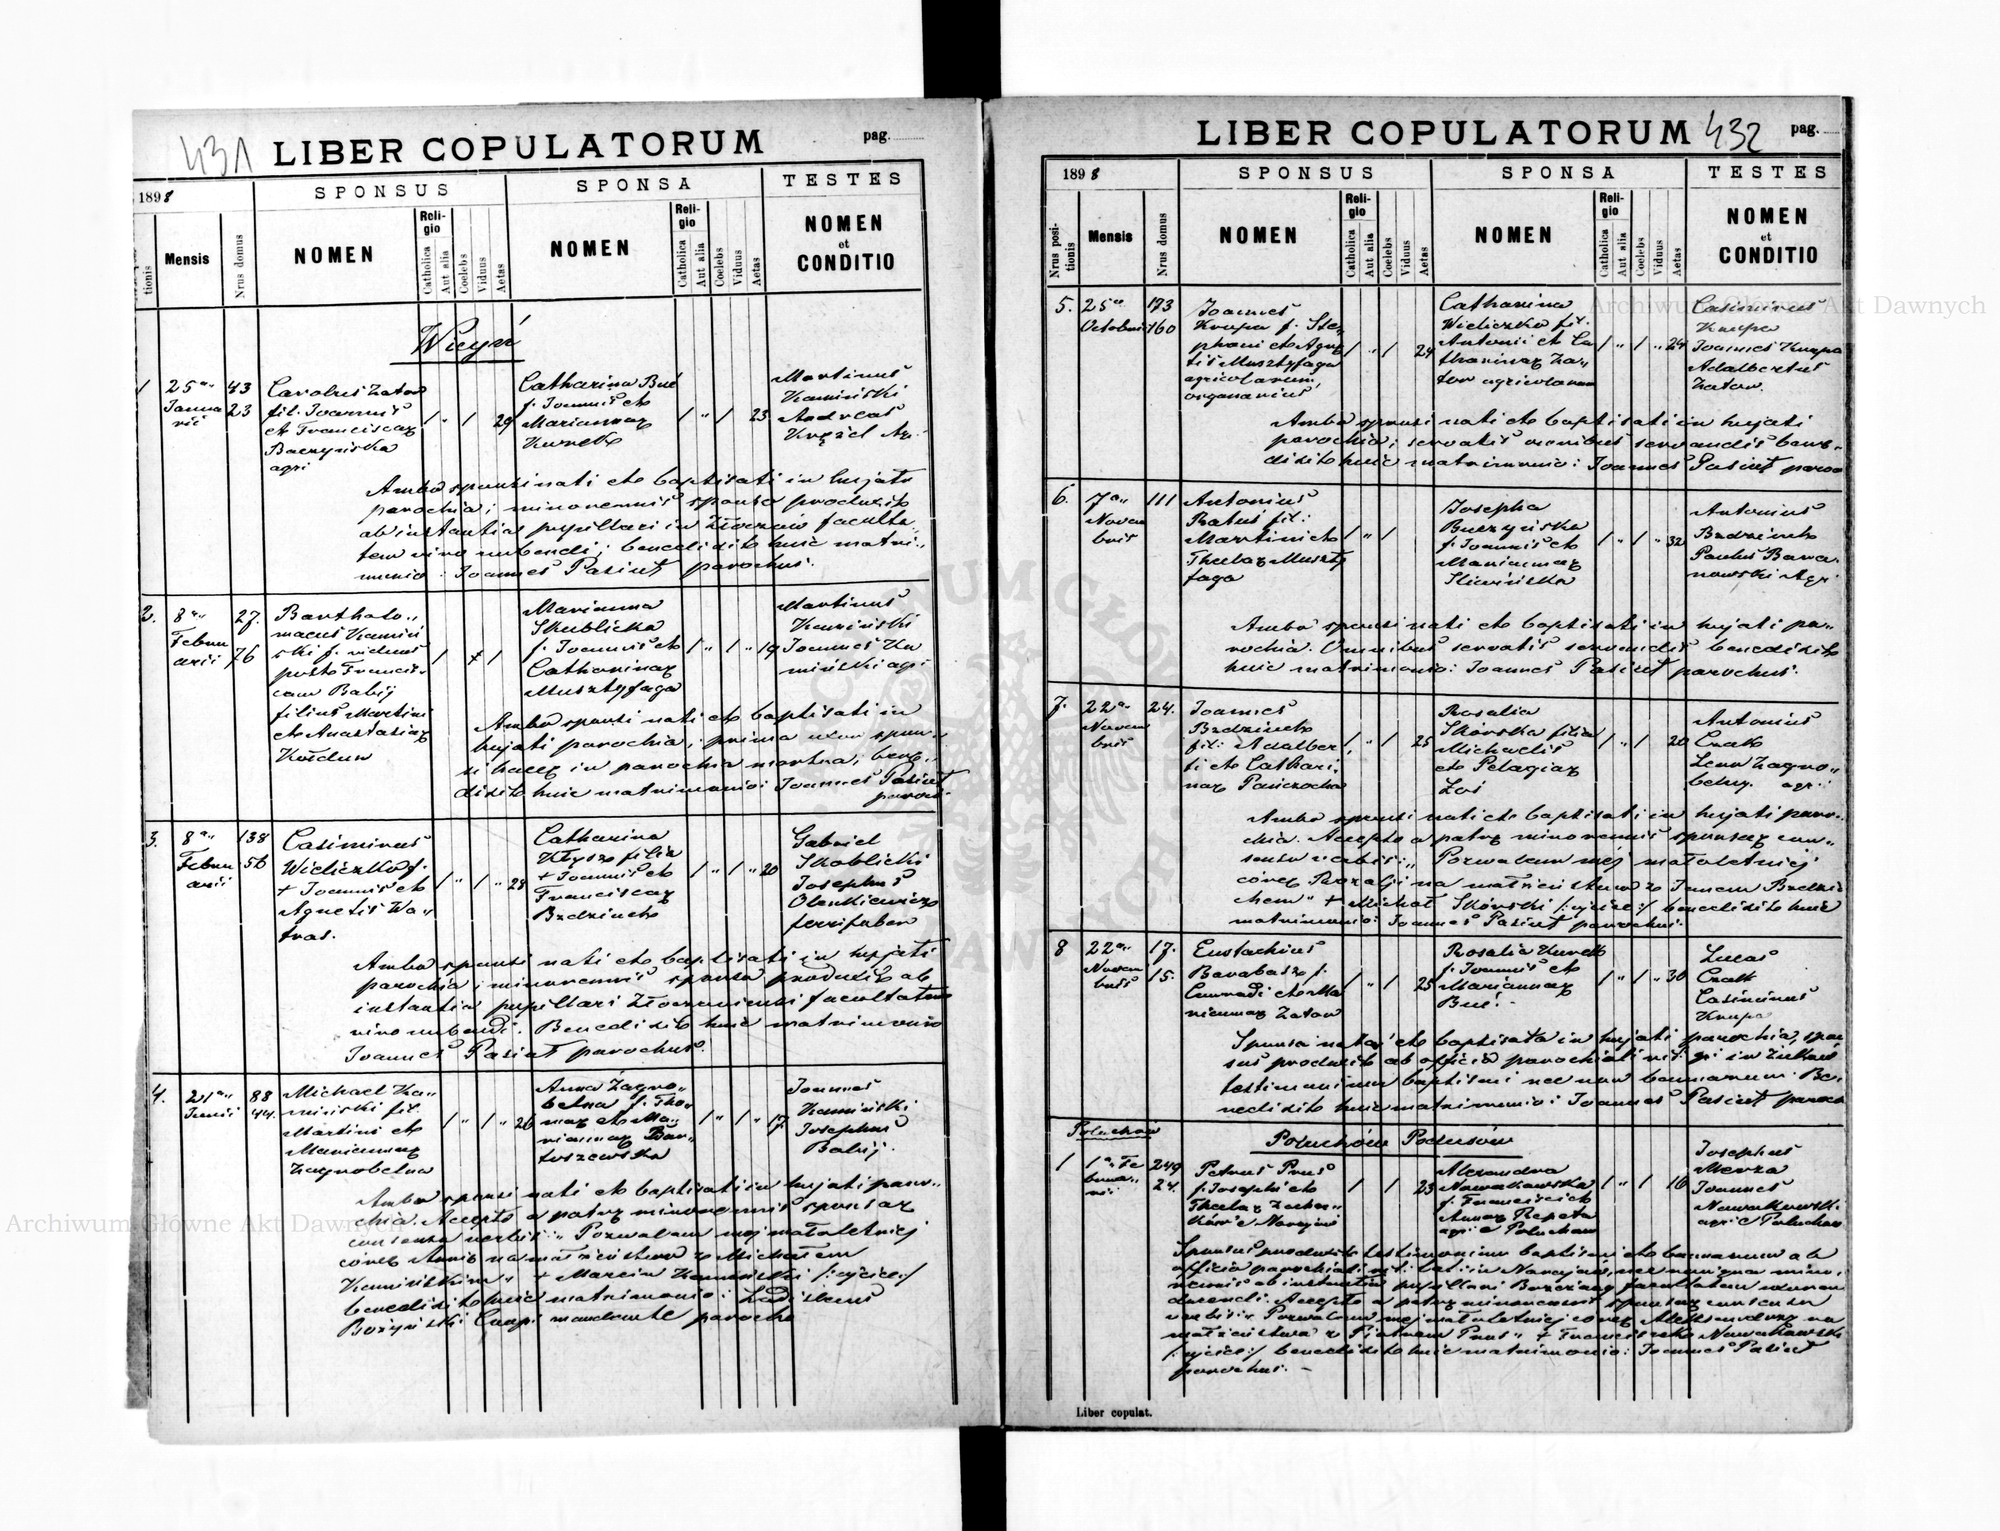 431
LIBER COPULATORUM
pag.
1898
SPONSUS
SPONSA
TESTES
tionis
Mensis
Nrus domus
NOMEN
Religio
Catholica
Aut alia
Coelebs
Viduus
Aetas
NOMEN
Religio
Catholica
Aut alia
Coelebs
Viduus
Aetas
NOMEN
et
CONDITIO
Wicyń
1
25
Janua
rii
43
23
Carolus Zator
fil. Joannis
et Franciscae
Baczyńska
agri
29
Catharina Buć
f. Joannis et
Mariannae
23
Martinus
Kamiński
Andreas
Ambo sponsi nati et baptisati in hujate
parochia; minorennis sponsa produxit
ab instantia pupillari in Złoczów faculta
tem viro nubendi; benedixit huic matri
monio: Joannes Pasiut parochus.
2.
8
Febru
arii
27.
76
Bartholo
maeus Kamiń
ski f. viduus
post Francis
cam Babij
filius Martini
et Anastasiae
Kołdun
Marianna
Skublicka
f. Joannis et
Catharinae
Musztyfaga
19
Martinus
Kamiński
Joannes Ka
miński agr.
Ambo sponsi nati et baptisati in
hujati parochia; prima uxor spon
si hacce in parochia mortua; bene
dixit huic matrimonio: Joannes Pasiut
paroch.
3.
8
Febru
arii
138
56
Casimirus
Wieliczko f.
+ Joannis et
Agnetis Wa
tras.
28
Catharina
Kłyszo filia
+ Joannis et
Franciscae
Brdzinek
20
Gabriel
Skoblicki
Josephus
Olenkiewicz
ferrifaber
Ambo sponsi nati et baptisati in hujati
parochia; minorennis sponsa produxit ab
instantia pupillari Złoczoviensi facultatem
viro nubendi. Benedixit huic matrimonio
Joannes Pasiut parochus.
4.
21
Junii
88
44.
Michael Ka
miński fil.
Martini et
Mariannae
Zagrobelna
26
Anna Zagro
belna f. Tho
mae et Ma
riannae Bar
toszewska
17
Joannes
Kamiński
Josephus
Babij.
Ambo sponsi nati et baptisati in hujati paro
chia. Accepto a patre minorennis sponsae
consensu verbis: „Pozwalam mej małoletniej
córce Annie na małżeństwo z Michałem
Kamińskim" + Marcin Kamiński /:ojciec:/
benedixit huic matrimonio: Ladislaus
Bożyński Coop. mandante parocho
432
LIBER COPULATORUM
pag.
1898
SPONSUS
SPONSA
TESTES
Nrus positionis
Mensis
Nrus domus
NOMEN
Religio
Catholica
Aut alia
Coelebs
Viduus
Aetas
NOMEN
Religio
Catholica
Aut alia
Coelebs
Viduus
Aetas
NOMEN
et
CONDITIO
5.
25
Octobris
173
160
Joannes
Krupa f. Ste
phani et Agne
tis Musztyfaga
agricolarum,
organarius
24
Catharina
Wieliczko fil.
Antonii et Ca
tharinae Za
tor agricolarum
24
Casimirus
Krupa
Joannes Krupa
Adalbertus
Zator.
Ambo sponsi nati et baptisati in hujati
parochia; servatis omnibus servandis bene
dixit huic matrimonio: Joannes Pasiut paroc
6.
7
Novem
bris
111
Antonius
Ratuś fil:
Martini et
Theclae Muszty
faga
Josepha
Buczyńska
f. Joannis et
Mariannae
Śliwińska
32
Antonius
Brdzinek
Paulus Bara
nowski Agr.
Ambo sponsi nati et baptisati in hujati pa
rochia. Omnibus servatis servandis benedixit
huic matrimonio: Joannes Pasiut parochus.
7.
22
Novem
bris
24.
Joannes
Brdzinek
fil. Adalber
ti et Cathari
nae Pańczocha
25
Rosalia
Skórska filia
Michaelis
et Pelagiae
Łoś
20
Antonius
Czak
Leon Zagro
belny agr.
Ambo sponsi nati et baptisati in hujati paro
chia. Accepto a patre minorennis sponsae con
sensu verbis: „Pozwalam mej małoletniej
córce Rozalji na małżeństwo z Janem Brdzin
kiem" + Michał Skórski /:ojciec:/ benedixit huic
matrimonio: Joannes Pasiut parochus.
8
22
Novem
bris
17.
15.
Eustachius
Barabasz f.
Conradi et Ma
riannae Zator
25
Rosalia
f. Joannis et
Mariannae
Buć.
30
Lucas
Czak
Casimirus
Krupa
Sponsa nata et baptisata in hujati parochia, spon
sus produxit ab officio parochiali rit. gr. in
testimonium baptismi nec non bannorum. Be
nedixit huic matrimonio: Joannes Pasiut paroch
Poluchow
Poluchów
1
1
Fe
brua
rii
249
24.
Petrus Prus
f. Josephi et
Theclae
23
Alexandra
Nowakowska
f. Francisci et
Annae Repeta
agr. e Poluchow
16
Josephus
Merza
Joannes
Nowakowski
agr. e Poluchow
Sponsus produxit testimonium baptismi et bannorum ab
officio parochiali rit: lat: in Narajów, nec non qua mino
rennis ab instantia pupillari Brzezany facultatem uxorem
ducendi. Accepto a patre minorennis sponsae consensu
verbis: „Pozwalam mej małoletniej córce Aleksandrze na
małżeństwo z Piotrem Prus" + Franciszek Nowakowski
/:ojciec:/ benedixit huic matrimonio: Joannes Pasiut
parochus.
Liber copulat.
Archiwum Główne Akt Dawnych
Archiwum Główne Akt Dawnych
ARCHIWUM GŁÓWNE AKT DAWNYCH